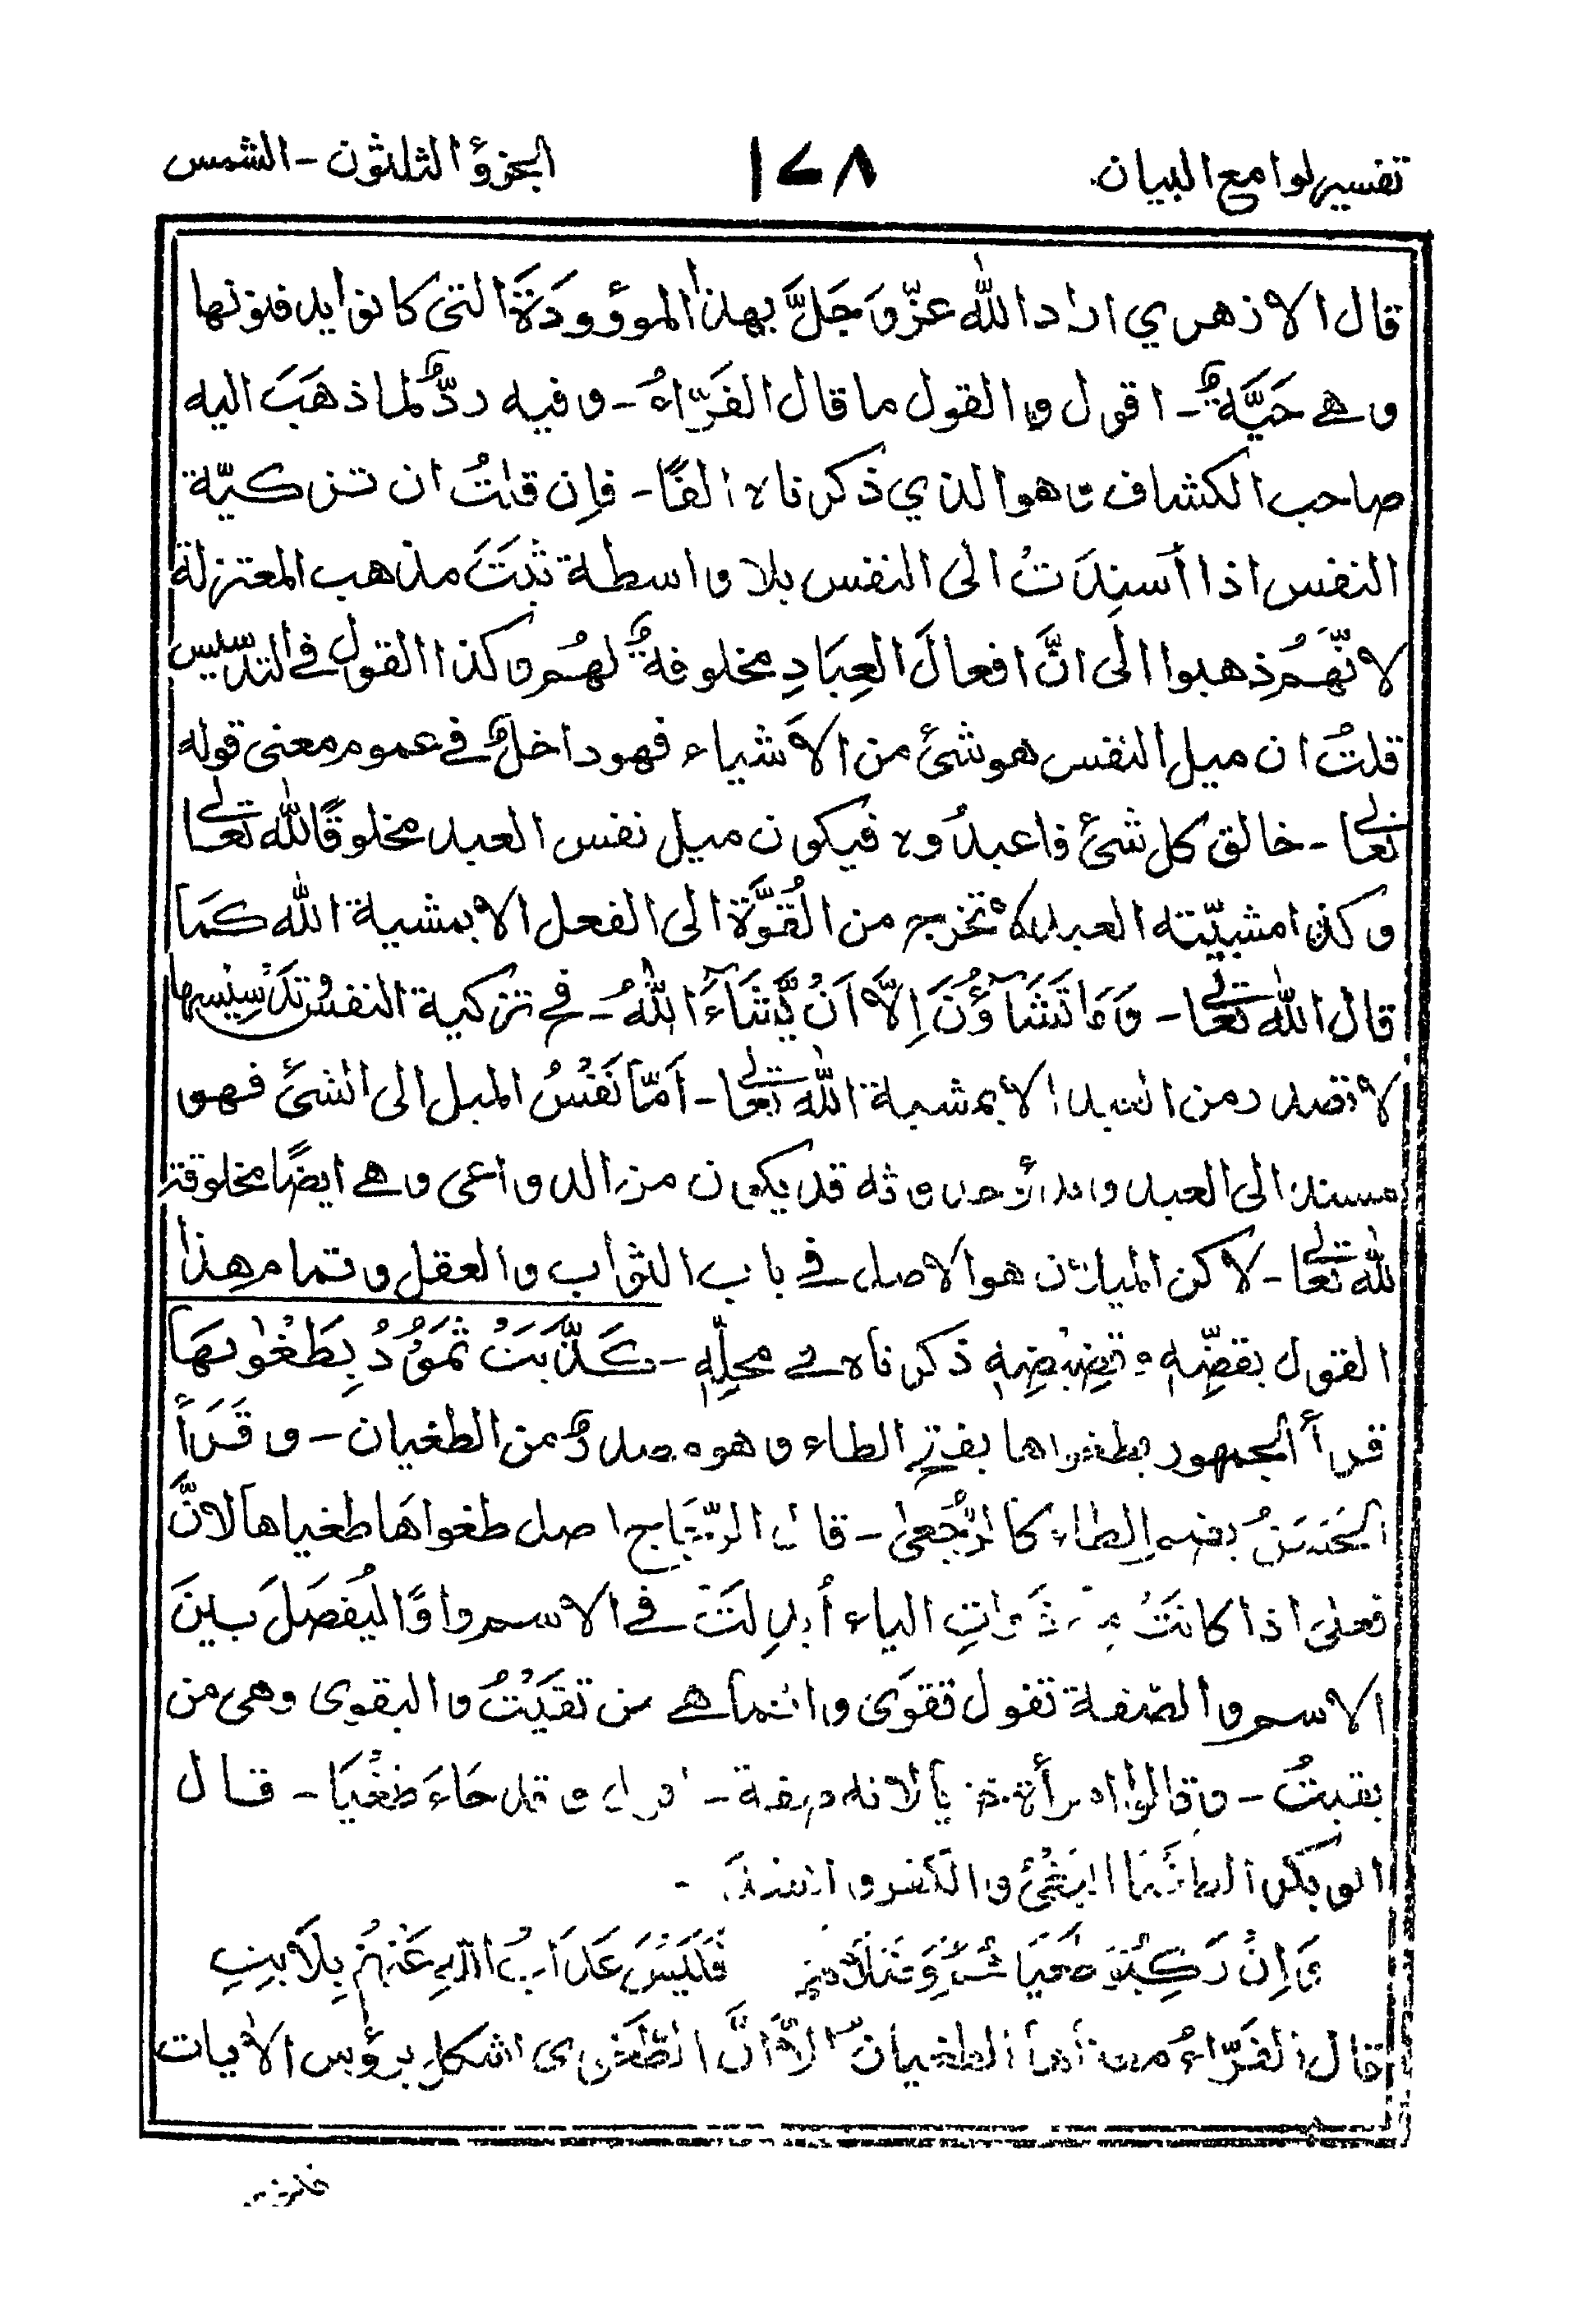 تفسير لوامع البيان
١٧٨
الجزؤ الثلثون - الشمس
قال الازهري اراد الله عزّ وَجَلَّ بهذا الموؤودَةَ التى كانوا يدفنونها
وهے حَيَّةٌ - اقول والقول ما قال الفَرّاءُ - وفيه ردٌّ لما ذهَبَ اليه
صاحب الكشاف وهو الذي ذكرناه انفًا - فإن قلتُ ان تزكيّة
النفس اذا اُسنِدَتُ الى النفس بلا واسطة ثبَتَ مذهب المعتزلة
لانّهُم ذهبوا الى انَّ افعالَ العِبَادِ مخلوقةٌ لهُم وكذا القول فے التدسيس
قلتُ ان ميل النفس هو شئ من الاَشياء فهو داخلٌ فے عموم معنى قوله
تعالے - خالق كل شئ فاعبدُوه فيكون ميل نفس العبد مخلوقًا لله تعالے
وكذا مشيّته العبد لا تخرج من القُوَّة الى الفعل الا بمشية الله كمَا
قال الله تعالے - وَمَا تَشَآؤُنَ اِلَّا اَنُ يَّشَآءَ اللهُ - فے تزكية النفس وتدسيسها
لا تصدر من العبد الا بمشية الله تعالے - اَمّا نَفُسُ الميل الى الشئ فهو
مسند الى العبد وحدوثه قد يكون من الدواعى وهے ايضًا مخلوقة
لله تعالے - لاكن الميلان هو الاصل فے باب الثواب والعقل وتمام هذا
القول بقضِّه وقضِيضِه ذكرناه فے محلِّه - كَذَّبَتُ ثَمُوُدُ بِطَغُوٰىهَا
قرأ الجمهور بطغواها بفتح الطاء وهو مصدرٌ من الطغيان - وقَرَأَ
الحَسَنُ بضم الطاء كالرُّجعىٰ - قال الزّجَاج اصل طغواهَا طغياها لانَّ
فعلى اذا كانَتُ من ذَوَاتِ الياء اُبدِلَتُ فے الاسم واوًا ليُفصَلَ بينَ
الاسم والصّفة تقول تقوَى وانّما هے من تقَيَتُ والبقوى وهى من
بقيتُ - وقالوا امرأة خزيا لانه صفة - اقول وقد جاءَ طغُيَا - قال
ابو بكر الطغيا البغُى والكفر وانشدَ -
وَاِنُ رَكِبُوُا طغُيَا فَلَيُسَ عَذَابُ اللهِ عَنُهُمُ بِلَابِثِ
قال الفَرّاءُ معناها الطغيان الّا اَنَّ الطَّغوى اشكل برؤس الاٰيات